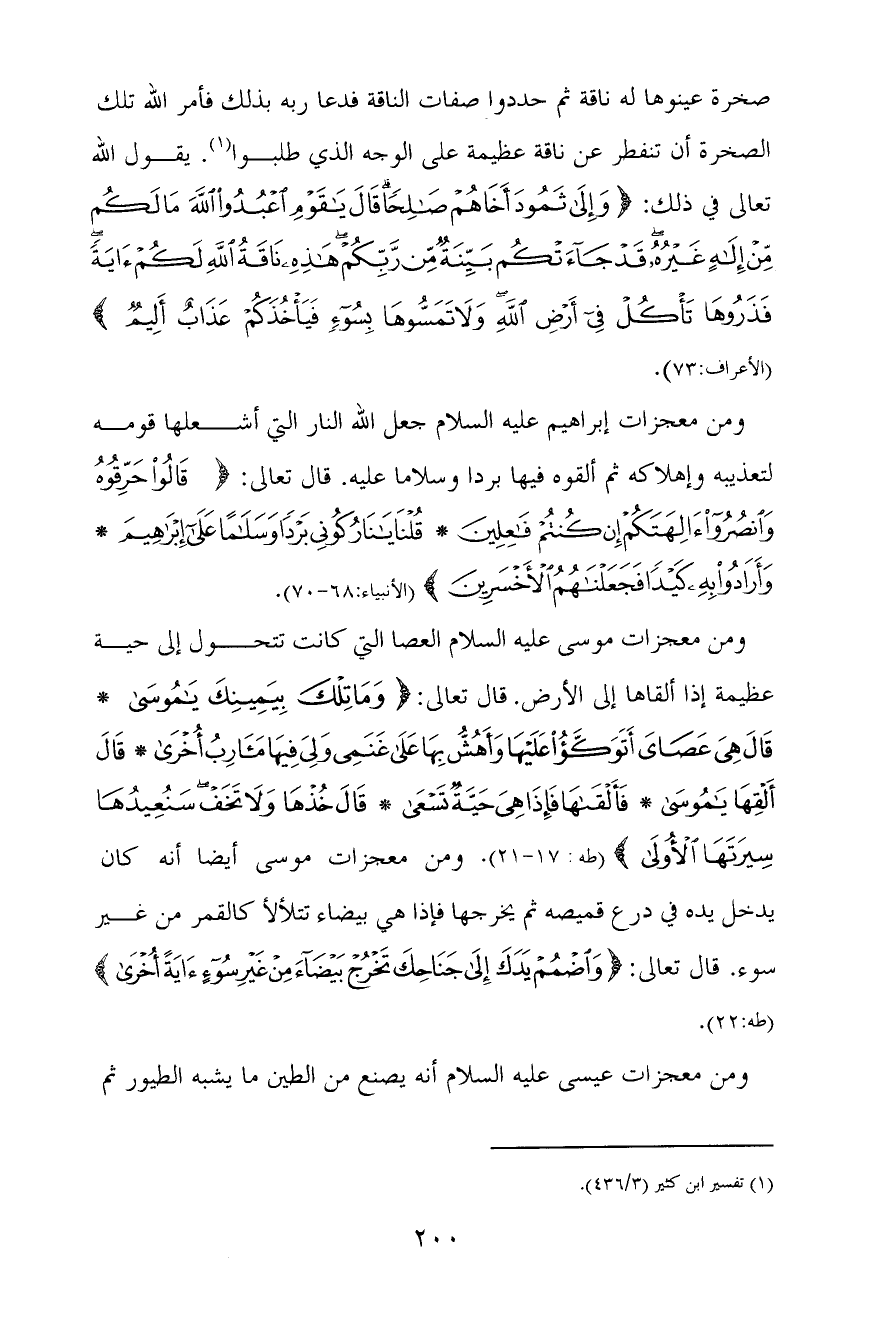 صخرة عينوها له ناقة ثم حددوا صفات الناقة فدعا ربه بذلك فأمر الله تلك
الصخرة أن تنفطر عن ناقة عظيمة على الوجه الذي طلبـــوا(١). يقـــول الله
تعالى في ذلك: ﴿ وَإِلَىٰ ثَمُودَ أَخَاهُمْ صَـٰلِحًا ۗ قَالَ يَـٰقَوْمِ ٱعْبُدُوا۟ ٱللَّهَ مَا لَكُم
مِّنْ إِلَـٰهٍ غَيْرُهُۥ ۖ قَدْ جَآءَتْكُم بَيِّنَةٌ مِّن رَّبِّكُمْ ۖ هَـٰذِهِۦ نَاقَةُ ٱللَّهِ لَكُمْ ءَايَةً ۖ
فَذَرُوهَا تَأْكُلْ فِىٓ أَرْضِ ٱللَّهِ ۖ وَلَا تَمَسُّوهَا بِسُوٓءٍ فَيَأْخُذَكُمْ عَذَابٌ أَلِيمٌ ﴾
(الأعراف:٧٣).
ومن معجزات إبراهيم عليه السلام جعل الله النار التي أشـــعلها قومـــه
لتعذيبه وإهلاكه ثم ألقوه فيها بردا وسلاما عليه. قال تعالى: ﴿ قَالُوا۟ حَرِّقُوهُ
وَٱنصُرُوٓا۟ ءَالِهَتَكُمْ إِن كُنتُمْ فَـٰعِلِينَ * قُلْنَا يَـٰنَارُ كُونِى بَرْدًا وَسَلَـٰمًا عَلَىٰٓ إِبْرَٰهِيمَ *
وَأَرَادُوا۟ بِهِۦ كَيْدًا فَجَعَلْنَـٰهُمُ ٱلْأَخْسَرِينَ ﴾ (الأنبياء:٦٨-٧٠).
ومن معجزات موسى عليه السلام العصا التي كانت تتحـــول إلى حيـــة
عظيمة إذا ألقاها إلى الأرض. قال تعالى: ﴿ وَمَا تِلْكَ بِيَمِينِكَ يَـٰمُوسَىٰ *
قَالَ هِىَ عَصَاىَ أَتَوَكَّؤُا۟ عَلَيْهَا وَأَهُشُّ بِهَا عَلَىٰ غَنَمِى وَلِىَ فِيهَا مَـَٔارِبُ أُخْرَىٰ * قَالَ
أَلْقِهَا يَـٰمُوسَىٰ * فَأَلْقَىٰهَا فَإِذَا هِىَ حَيَّةٌ تَسْعَىٰ * قَالَ خُذْهَا وَلَا تَخَفْ ۖ سَنُعِيدُهَا
سِيرَتَهَا ٱلْأُولَىٰ ﴾ (طه: ١٧-٢١). ومن معجزات موسى أيضا أنه كان
يدخل يده في درع قميصه ثم يخرجها فإذا هي بيضاء تتلألأ كالقمر من غـــير
سوء. قال تعالى: ﴿ وَٱضْمُمْ يَدَكَ إِلَىٰ جَنَاحِكَ تَخْرُجْ بَيْضَآءَ مِنْ غَيْرِ سُوٓءٍ ءَايَةً أُخْرَىٰ ﴾
(طه:٢٢).
ومن معجزات عيسى عليه السلام أنه يصنع من الطين ما يشبه الطيور ثم
(١) تفسير ابن كثير (٤٣٦/٣).
٢٠٠